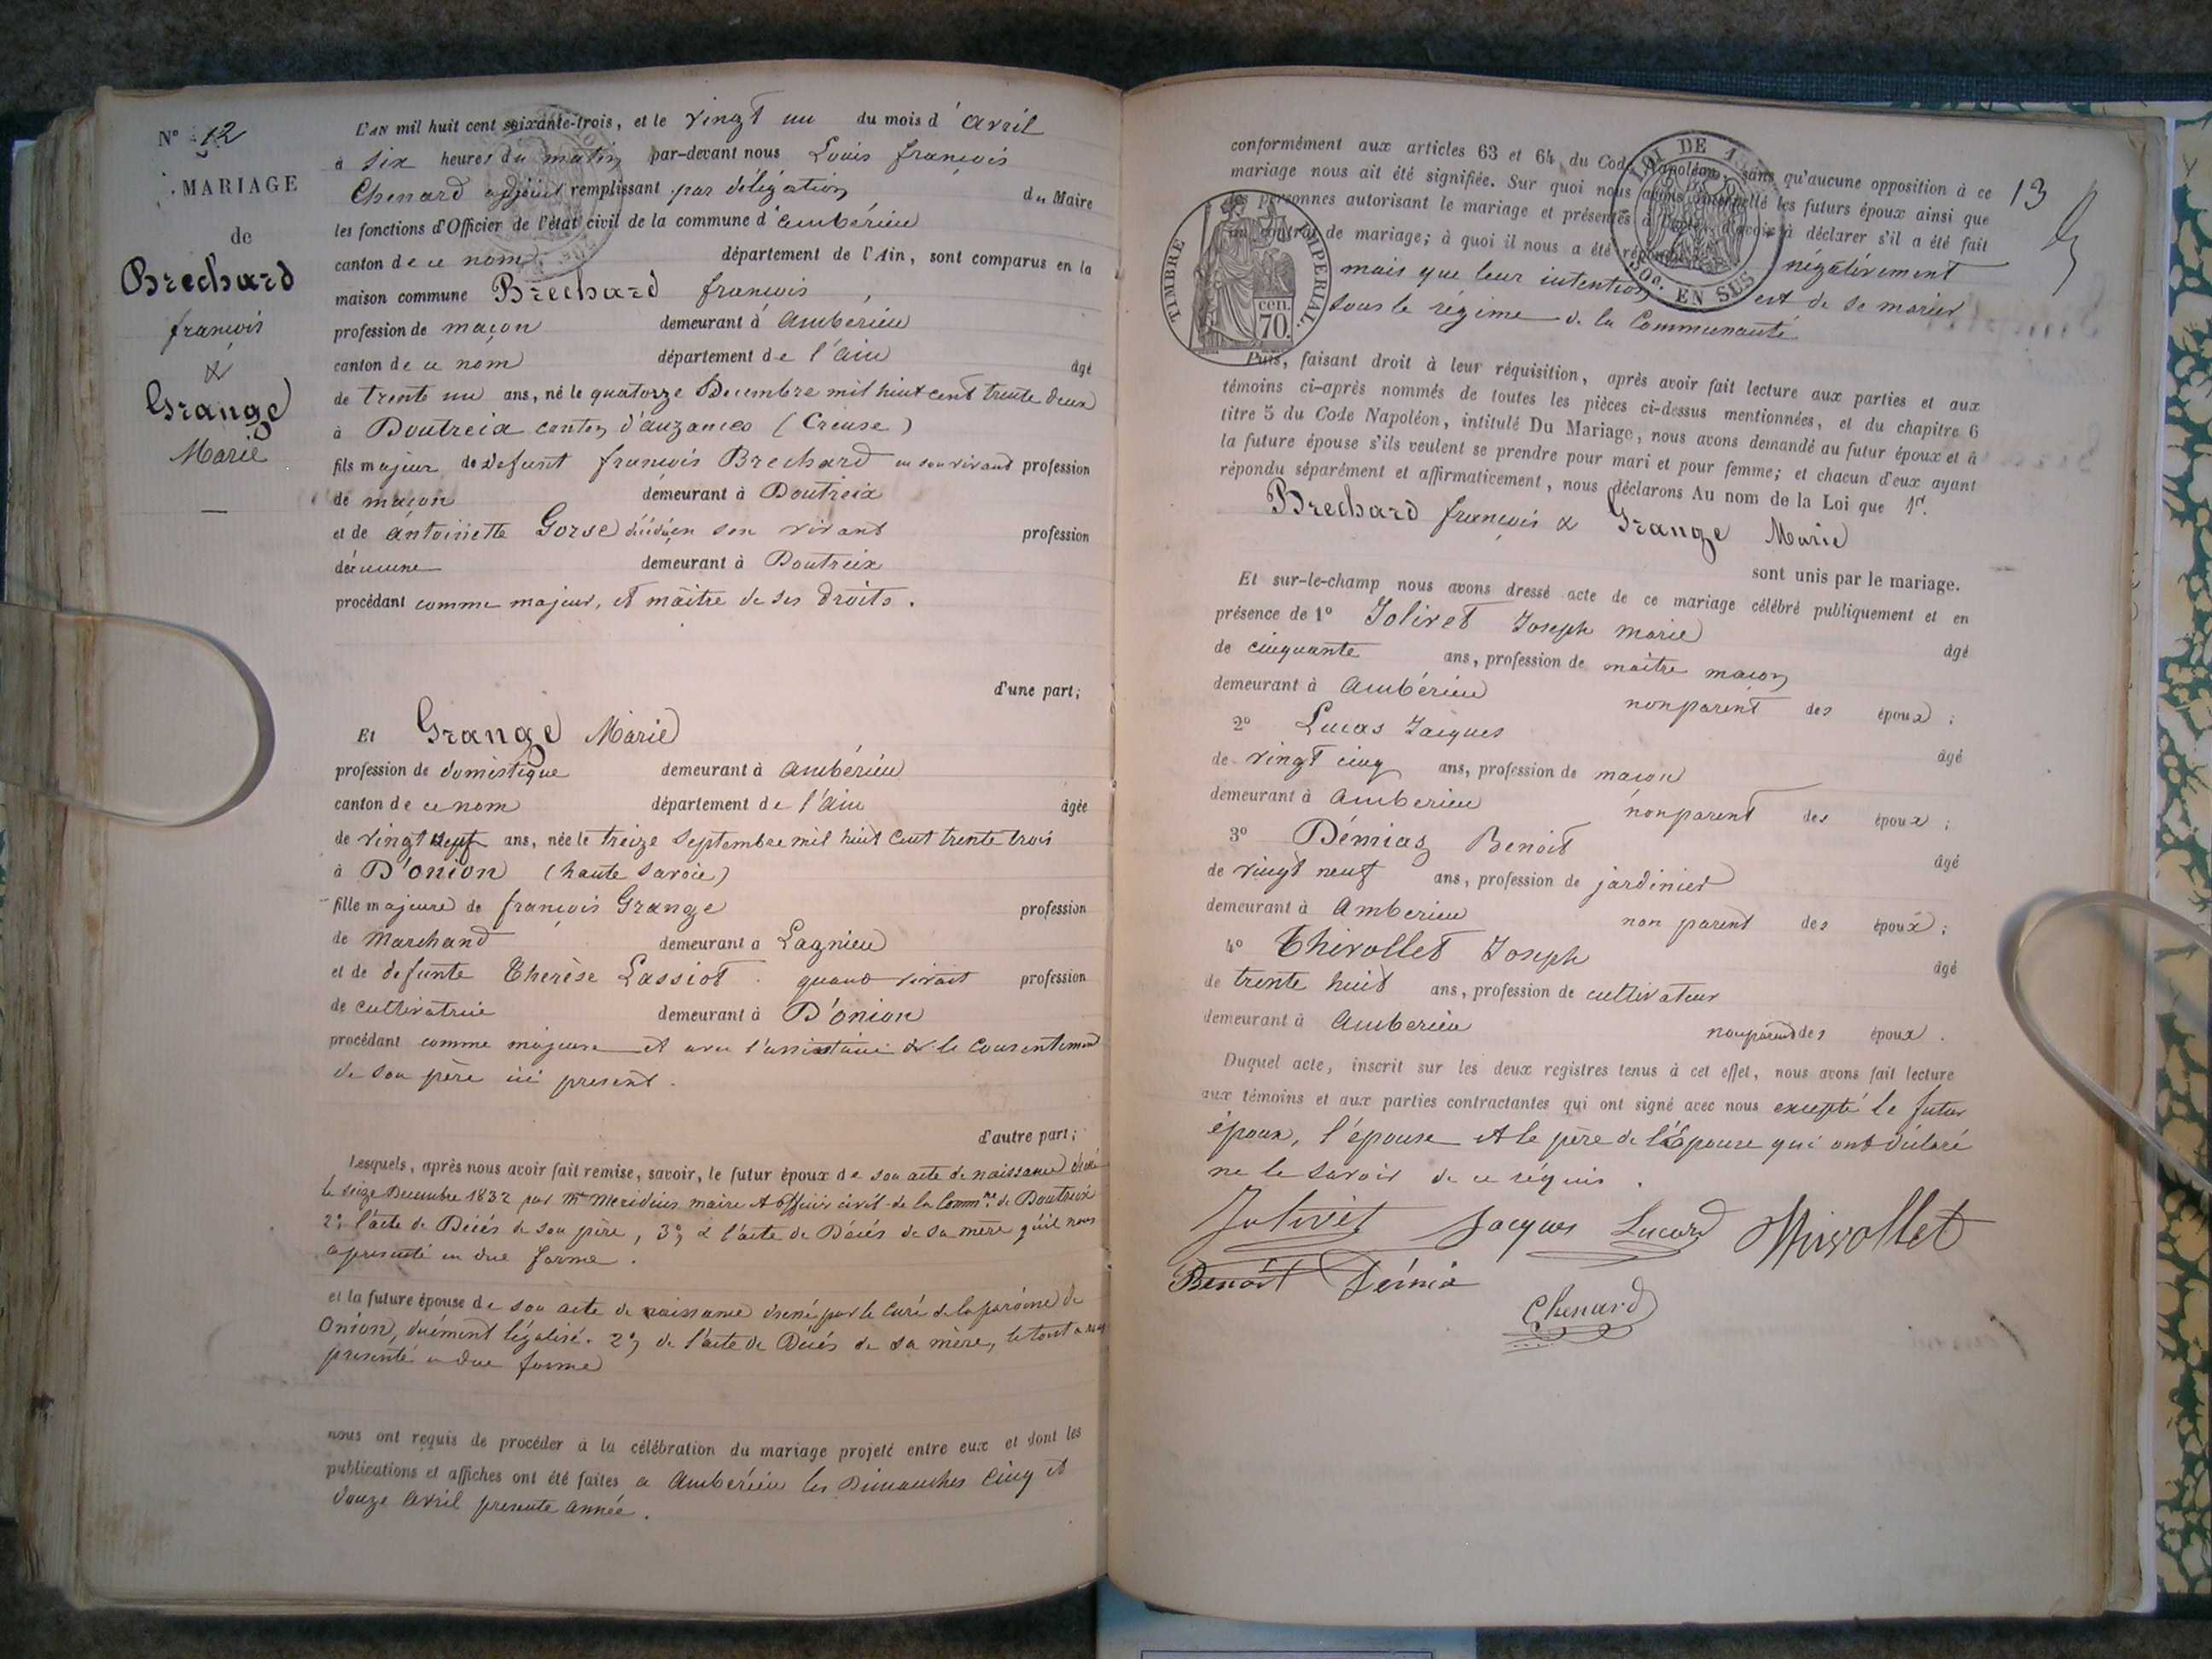 N° 12
MARIAGE
de
Brechard
françois
&
Grange
Marie
L'AN mil huit cent soixante-trois, et le vingt un du mois d'avril
à six heures du matin par-devant nous Louis françois
Chenard adjoint remplissant par délégation du Maire
les fonctions d'Officier de l'état civil de la commune d'ambérieu
canton de ce nom, département de l'Ain, sont comparus en la
maison commune Brechard françois,
profession de maçon demeurant à ambérieu
canton de ce nom département de l'ain âgé
de trente un ans, né le quatorze Decembre mil huit cent trente deux
à Doutreix canton d'auzances (Creuse)
fils majeur de defunt françois Brechard en son vivant profession
de maçon demeurant à Doutreix
et de antoinette Gorse en son vivant profession
d'aucune demeurant à Doutreix
procédant comme majeur, et maître de ses droits.
d'une part;
Et Grange Marie
profession de domestique demeurant à ambérieu
canton de ce nom département de l'ain âgée
de vingt sept ans, née le treize Septembre mil huit cent trente trois
à D'onion (haute savoie)
fille majeure de françois Grange profession
de Marchand demeurant à Lagnieu
et de defunte Therèse Lassiot quand vivait profession
de cultivatrice demeurant à D'onion
procédant comme majeure et avec l'assistance & le consentement
de son père ici present.
d'autre part;
Lesquels, après nous avoir fait remise, savoir, le futur époux de son acte de naissance dréssé
le seize Decembre 1832 par Mr Meridius maire et officier civil de la Commne de Doutreix
2°, l'acte de Décés de son père, 3°, & l'acte de Décés de sa mère qu'il nous
a présenté en due forme.
et la future épouse de son acte de naissance dressé par le Curé de la paroisse de
Onion, duément légalisé. 2°, de l'acte de Décés de sa mère, le tout a nous
presenté en due forme
nous ont requis de procéder à la célébration du mariage projeté entre eux et dont les
publications et affiches ont été faites a ambérieu les Dimanches cinq et
douze avril presente année.
13
conformément aux articles 63 et 64 du Code Napoléon, sans qu'aucune opposition à ce
mariage nous ait été signifiée. Sur quoi nous avons interpellé les futurs époux ainsi que
les personnes autorisant le mariage et présentes à l'acte, d'avoir à déclarer s'il a été fait
un contrat de mariage; à quoi il nous a été répondu négativement
mais que leur intention est de se marier
sous le régime de la Communauté
TIMBRE IMPERIAL.
70. cen.
LOI DE
50c. EN SUS
Puis, faisant droit à leur réquisition, après avoir fait lecture aux parties et aux
témoins ci-après nommés de toutes les pièces ci-dessus mentionnées, et du chapitre 6
titre 5 du Code Napoléon, intitulé Du Mariage, nous avons demandé au futur époux et à
la future épouse s'ils veulent se prendre pour mari et pour femme; et chacun d'eux ayant
répondu séparément et affirmativement, nous déclarons Au nom de la Loi que
Brechard françois & Grange Marie
sont unis par le mariage.
Et sur-le-champ nous avons dressé acte de ce mariage célébré publiquement et en
présence de 1° Jolivet Joseph marie âgé
de cinquante ans, profession de maitre maçon
demeurant à ambérieu non parent des époux;
2° Lucas Jacques âgé
de vingt cinq ans, profession de maçon
demeurant à amberieu non parent des époux;
3° Démiaz Benoit âgé
de vingt neuf ans, profession de jardinier
demeurant à Amberieu non parent des époux;
4° Thivollet Joseph âgé
de trente huit ans, profession de cultivateur
demeurant à amberieu non parent des époux.
Duquel acte, inscrit sur les deux registres tenus à cet effet, nous avons fait lecture
aux témoins et aux parties contractantes qui ont signé avec nous excepté le futur
époux, l'épouse et le père de l'Epouse qui ont déclaré
ne le savoir de ce réquis.
Jolivet Jacques Lucard Thivollet
Benoît Démia
Chenard